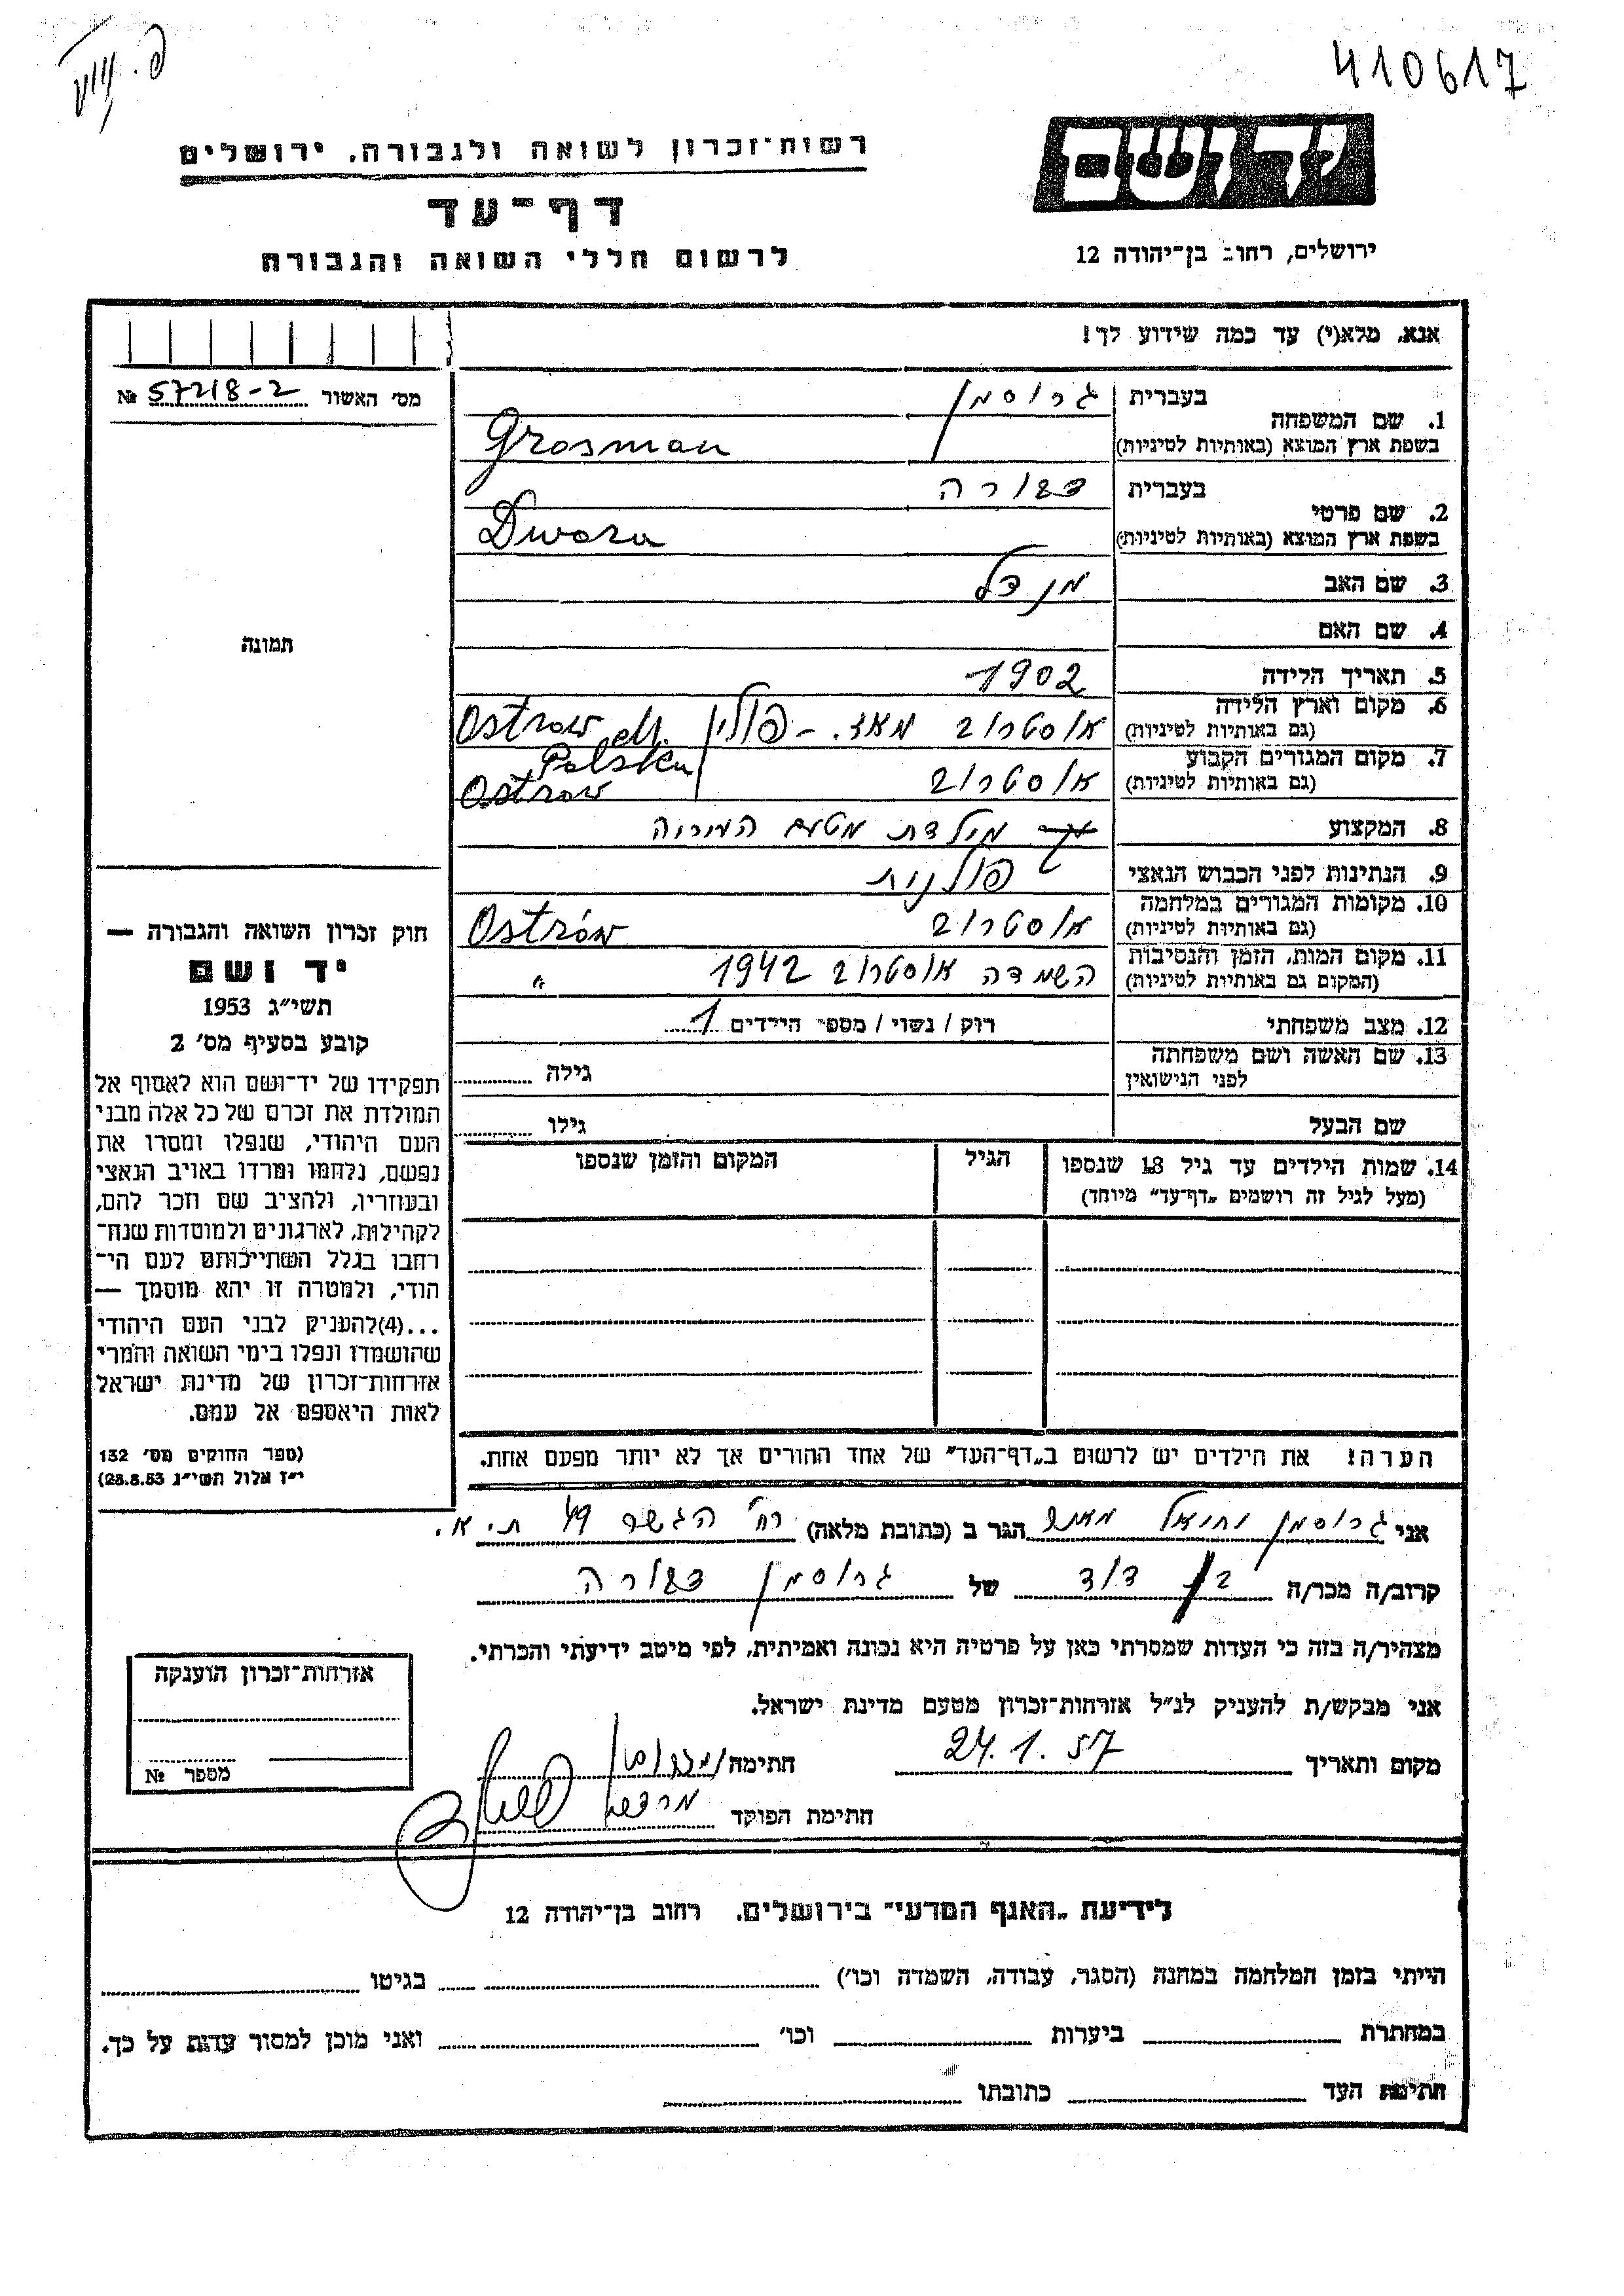 410617
יד ושם
רשות־זכרון לשואה ולגבורה, ירושלים
דף־עד
לרשום חללי השואה והגבורה
ירושלים, רחוב בן־יהודה 12
אנא, מלא(י) עד כמה שידוע לך!
מס׳ האשור 57218-2 №
תמונה
1. שם המשפחה
בעברית גרוסמן
בשפת ארץ המוצא (באותיות לטיניות) Grosman
2. שם פרטי
בעברית דבורה
בשפת ארץ המוצא (באותיות לטיניות) Dwora
3. שם האב מנדל
4. שם האם
5. תאריך הלידה 1902
6. מקום וארץ הלידה אוסטרוב מאז. – פולין Ostrow M.
(גם באותיות לטיניות) Polska
7. מקום המגורים הקבוע אוסטרוב Ostrow
(גם באותיות לטיניות)
8. המקצוע מילדת מטעם
9. הנתינות לפני הכבוש הנאצי פולנית
10. מקומות המגורים במלחמה אוסטרוב Ostrów
(גם באותיות לטיניות)
11. מקום המות, הזמן והנסיבות השמדה אוסטרוב 1942 "
(המקום גם באותיות לטיניות)
12. מצב משפחתי רוק / נשוי / מספר הילדים 1
13. שם האשה ושם משפחתה גילה
לפני הנישואין
שם הבעל גילו
14. שמות הילדים עד גיל 18 שנספו הגיל המקום והזמן שנספו
(מעל לגיל זה רושמים „דף־עד” מיוחד)
הערה! את הילדים יש לרשום ב„דף־העד” של אחד ההורים אך לא יותר מפעם אחת.
חוק זכרון השואה והגבורה —
יד ושם
תשי״ג 1953
קובע בסעיף מס׳ 2
תפקידו של יד־ושם הוא לאסוף אל
המולדת את זכרם של כל אלה מבני
העם היהודי, שנפלו ומסרו את
נפשם, נלחמו ומרדו באויב הנאצי
ובעוזריו, ולהציב שם וזכר להם,
לקהילות, לארגונים ולמוסדות שנח־
רחבו בגלל השתייכותם לעם הי־
הודי, ולמטרה זו יהא מוסמך —
...(4)להעניק לבני העם היהודי
שהושמדו ונפלו בימי השואה והמרי
אזרחות־זכרון של מדינת ישראל
לאות היאספם אל עמם.
(ספר החוקים מס׳ 132
י״ז אלול תשי״ג 28.8.53)
אני גרוסמן הגר ב (כתובת מלאה) רח׳ הגשר 49 ת.א.
קרוב/ה מכר/ה בן דוד של גרוסמן דבורה
מצהיר/ה בזה כי העדות שמסרתי כאן על פרטיה היא נכונה ואמיתית, לפי מיטב ידיעתי והכרתי.
אני מבקש/ת להעניק לנ״ל אזרחות־זכרון מטעם מדינת ישראל.
מקום ותאריך 24.1.57 חתימה
חתימת הפוקד
אזרחות־זכרון הוענקה
מספר №
לידיעת „האגף המדעי” בירושלים, רחוב בן־יהודה 12
הייתי בזמן המלחמה במחנה (הסגר, עבודה, השמדה וכו׳) בגיטו
במחתרת ביערות וכו׳ ואני מוכן למסור עדות על כך.
חתימת העד כתובתו